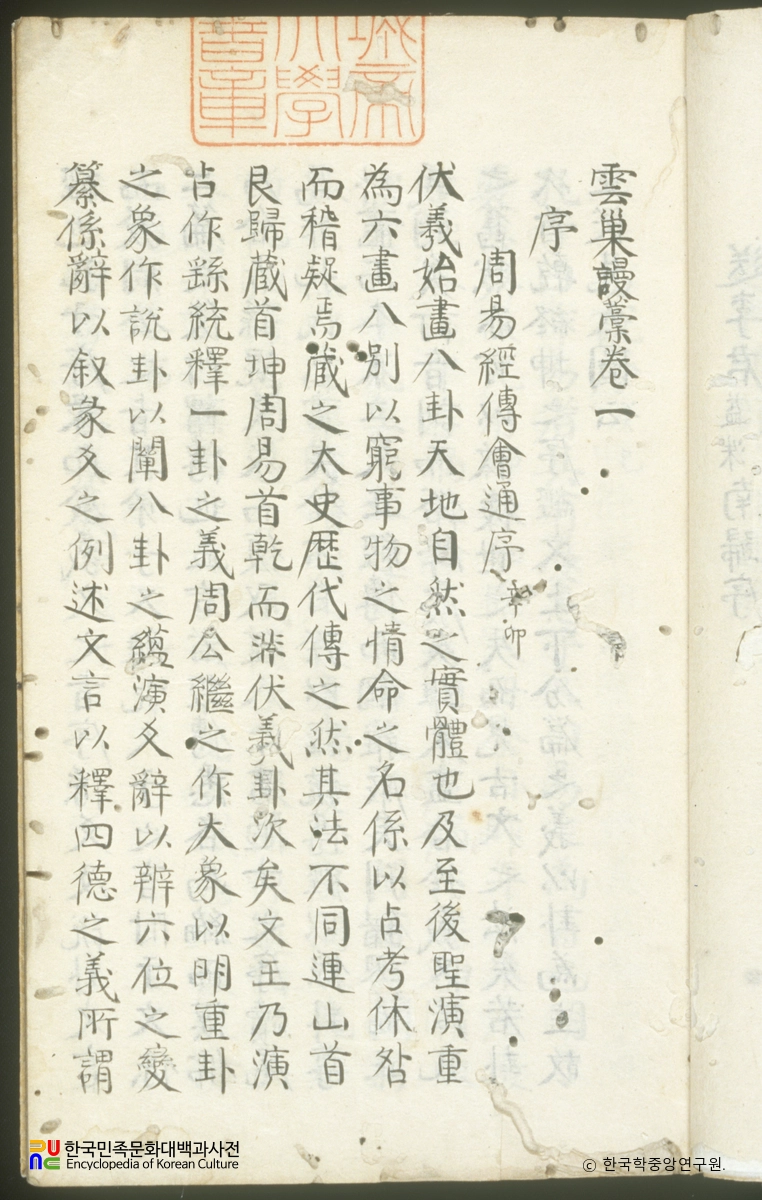 雲巢謾藁卷一
序
周易經傳會通序 辛卯
伏羲始畫八卦天地自然之實體也及至後聖演重
為六畫八別以窮事物之情命之名係以占考休咎
而稽疑焉藏之太史歷代傳之然其法不同連山首
艮歸藏首坤周易首乾而非伏羲卦次矣文王乃演
占作繇統釋一卦之義周公繼之作大象以明重卦
之象作說卦以闡八卦之蘊演爻辭以辨六位之變
纂係辭以叙彖爻之例述文言以釋四德之義所謂
한국민족문화대백과사전
Encyclopedia of Korean Culture
© 한국학중앙연구원.